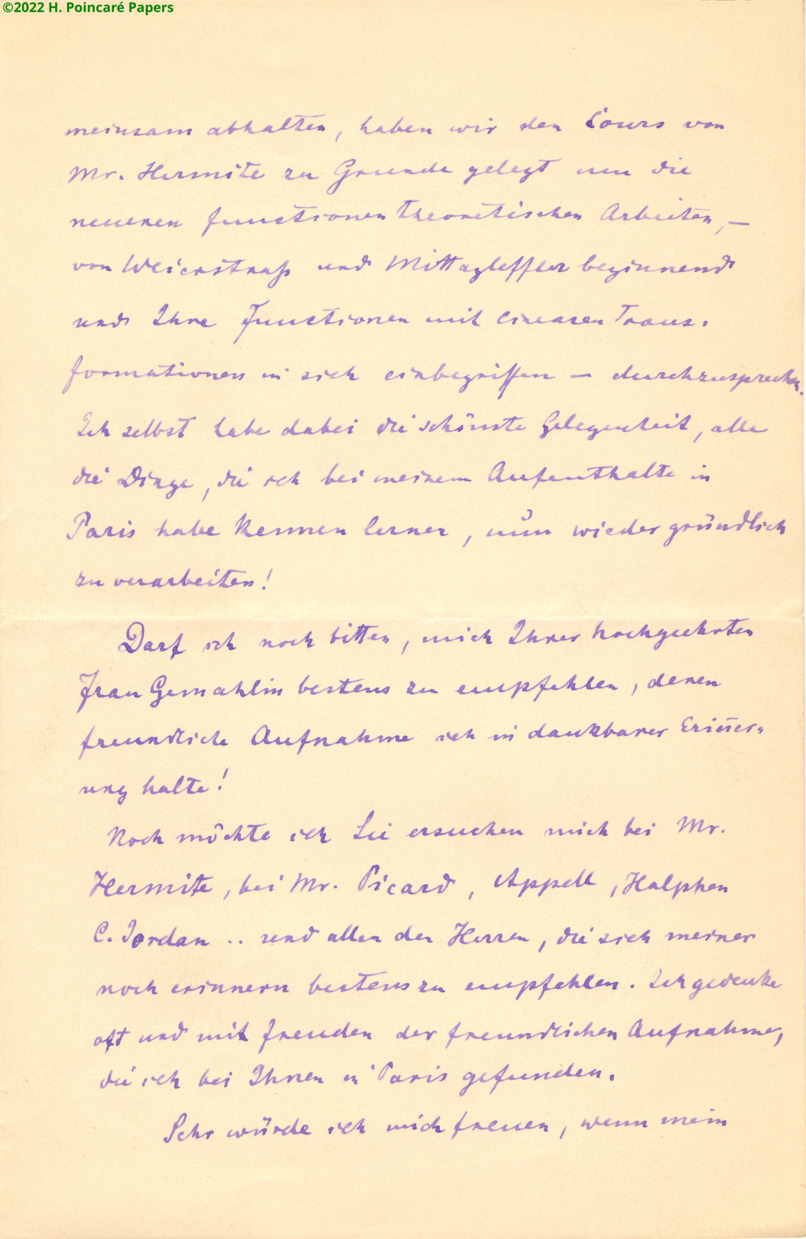 ©2022 H. Poincaré Papers
meinsam abhalten, haben wir den Cours von
Mr. Hermite zu Grunde gelegt um die
neueren functionentheoretischen Arbeiten, –
von Weierstraß und Mittagleffler beginnend
und Ihre Functionen mit linearen Trans-
formationen in sich einbegriffen – durchzusprechen.
Ich selbst habe dabei die schönste Gelegenheit, alle
die Dinge, die ich bei meinem Aufenthalte in
Paris habe kennen lernen, nun wieder gründlich
zu verarbeiten!
Darf ich noch bitten, mich Ihrer hochgeehrten
Frau Gemahlin bestens zu empfehlen, deren
freundliche Aufnahme ich in dankbarer Eriñer-
ung halte!
Noch möchte ich Sie ersuchen mich bei Mr.
Hermite, bei Mr. Picard, Appell, Halphen
C. Jordan .. und allen den Herren, die sich meiner
noch erinnern bestens zu empfehlen. Ich gedenke
oft und mit Freuden der freundlichen Aufnahme,
die ich bei Ihnen in Paris gefunden.
Sehr würde ich mich freuen, wenn mein